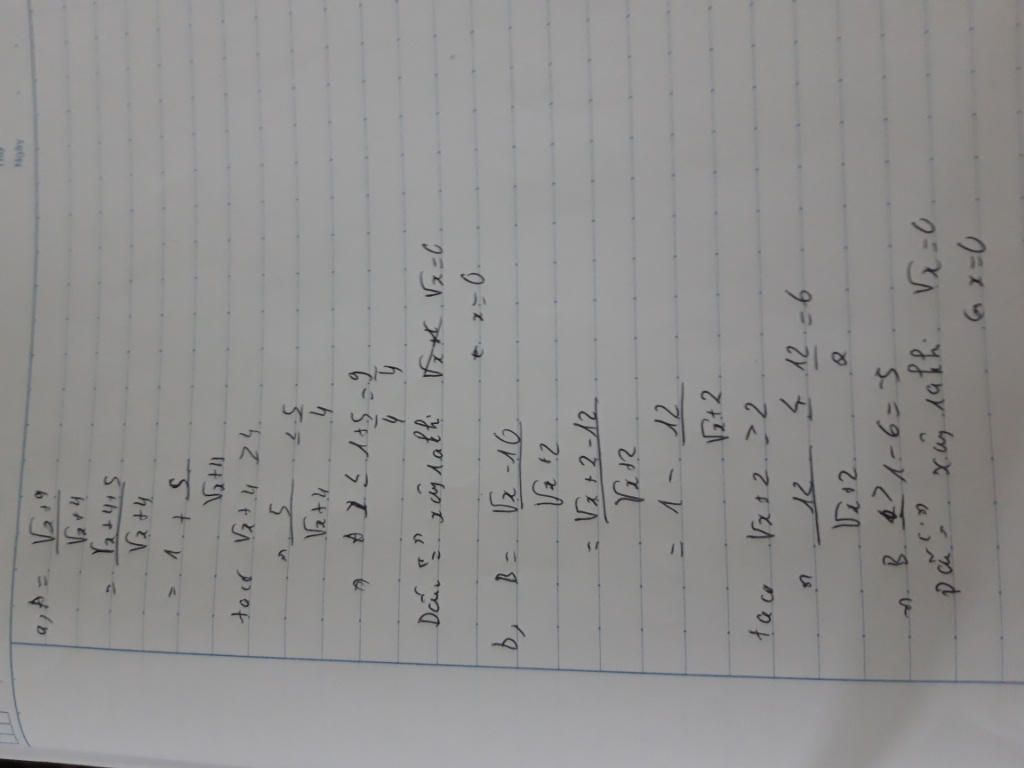 a, A = √x+9 / √x+4
= √x+4+5 / √x+4
= 1 + 5 / √x+4
ta có √x+4 ≥ 4
⇒ 5 / √x+4 ≤ 5 / 4
⇒ A ≤ 1+5 / 4 = 9 / 4
Dấu "=" xảy ra khi √x=0
x=0
b, B = √x-10 / √x+2
= √x+2-12 / √x+2
= 1 - 12 / √x+2
ta có √x+2 ≥ 2
⇒ 12 / √x+2 ≤ 12 / 2 = 6
⇒ B ≥ 1-6=-5
Dấu "=" xảy ra khi √x=0
⇔ x=0